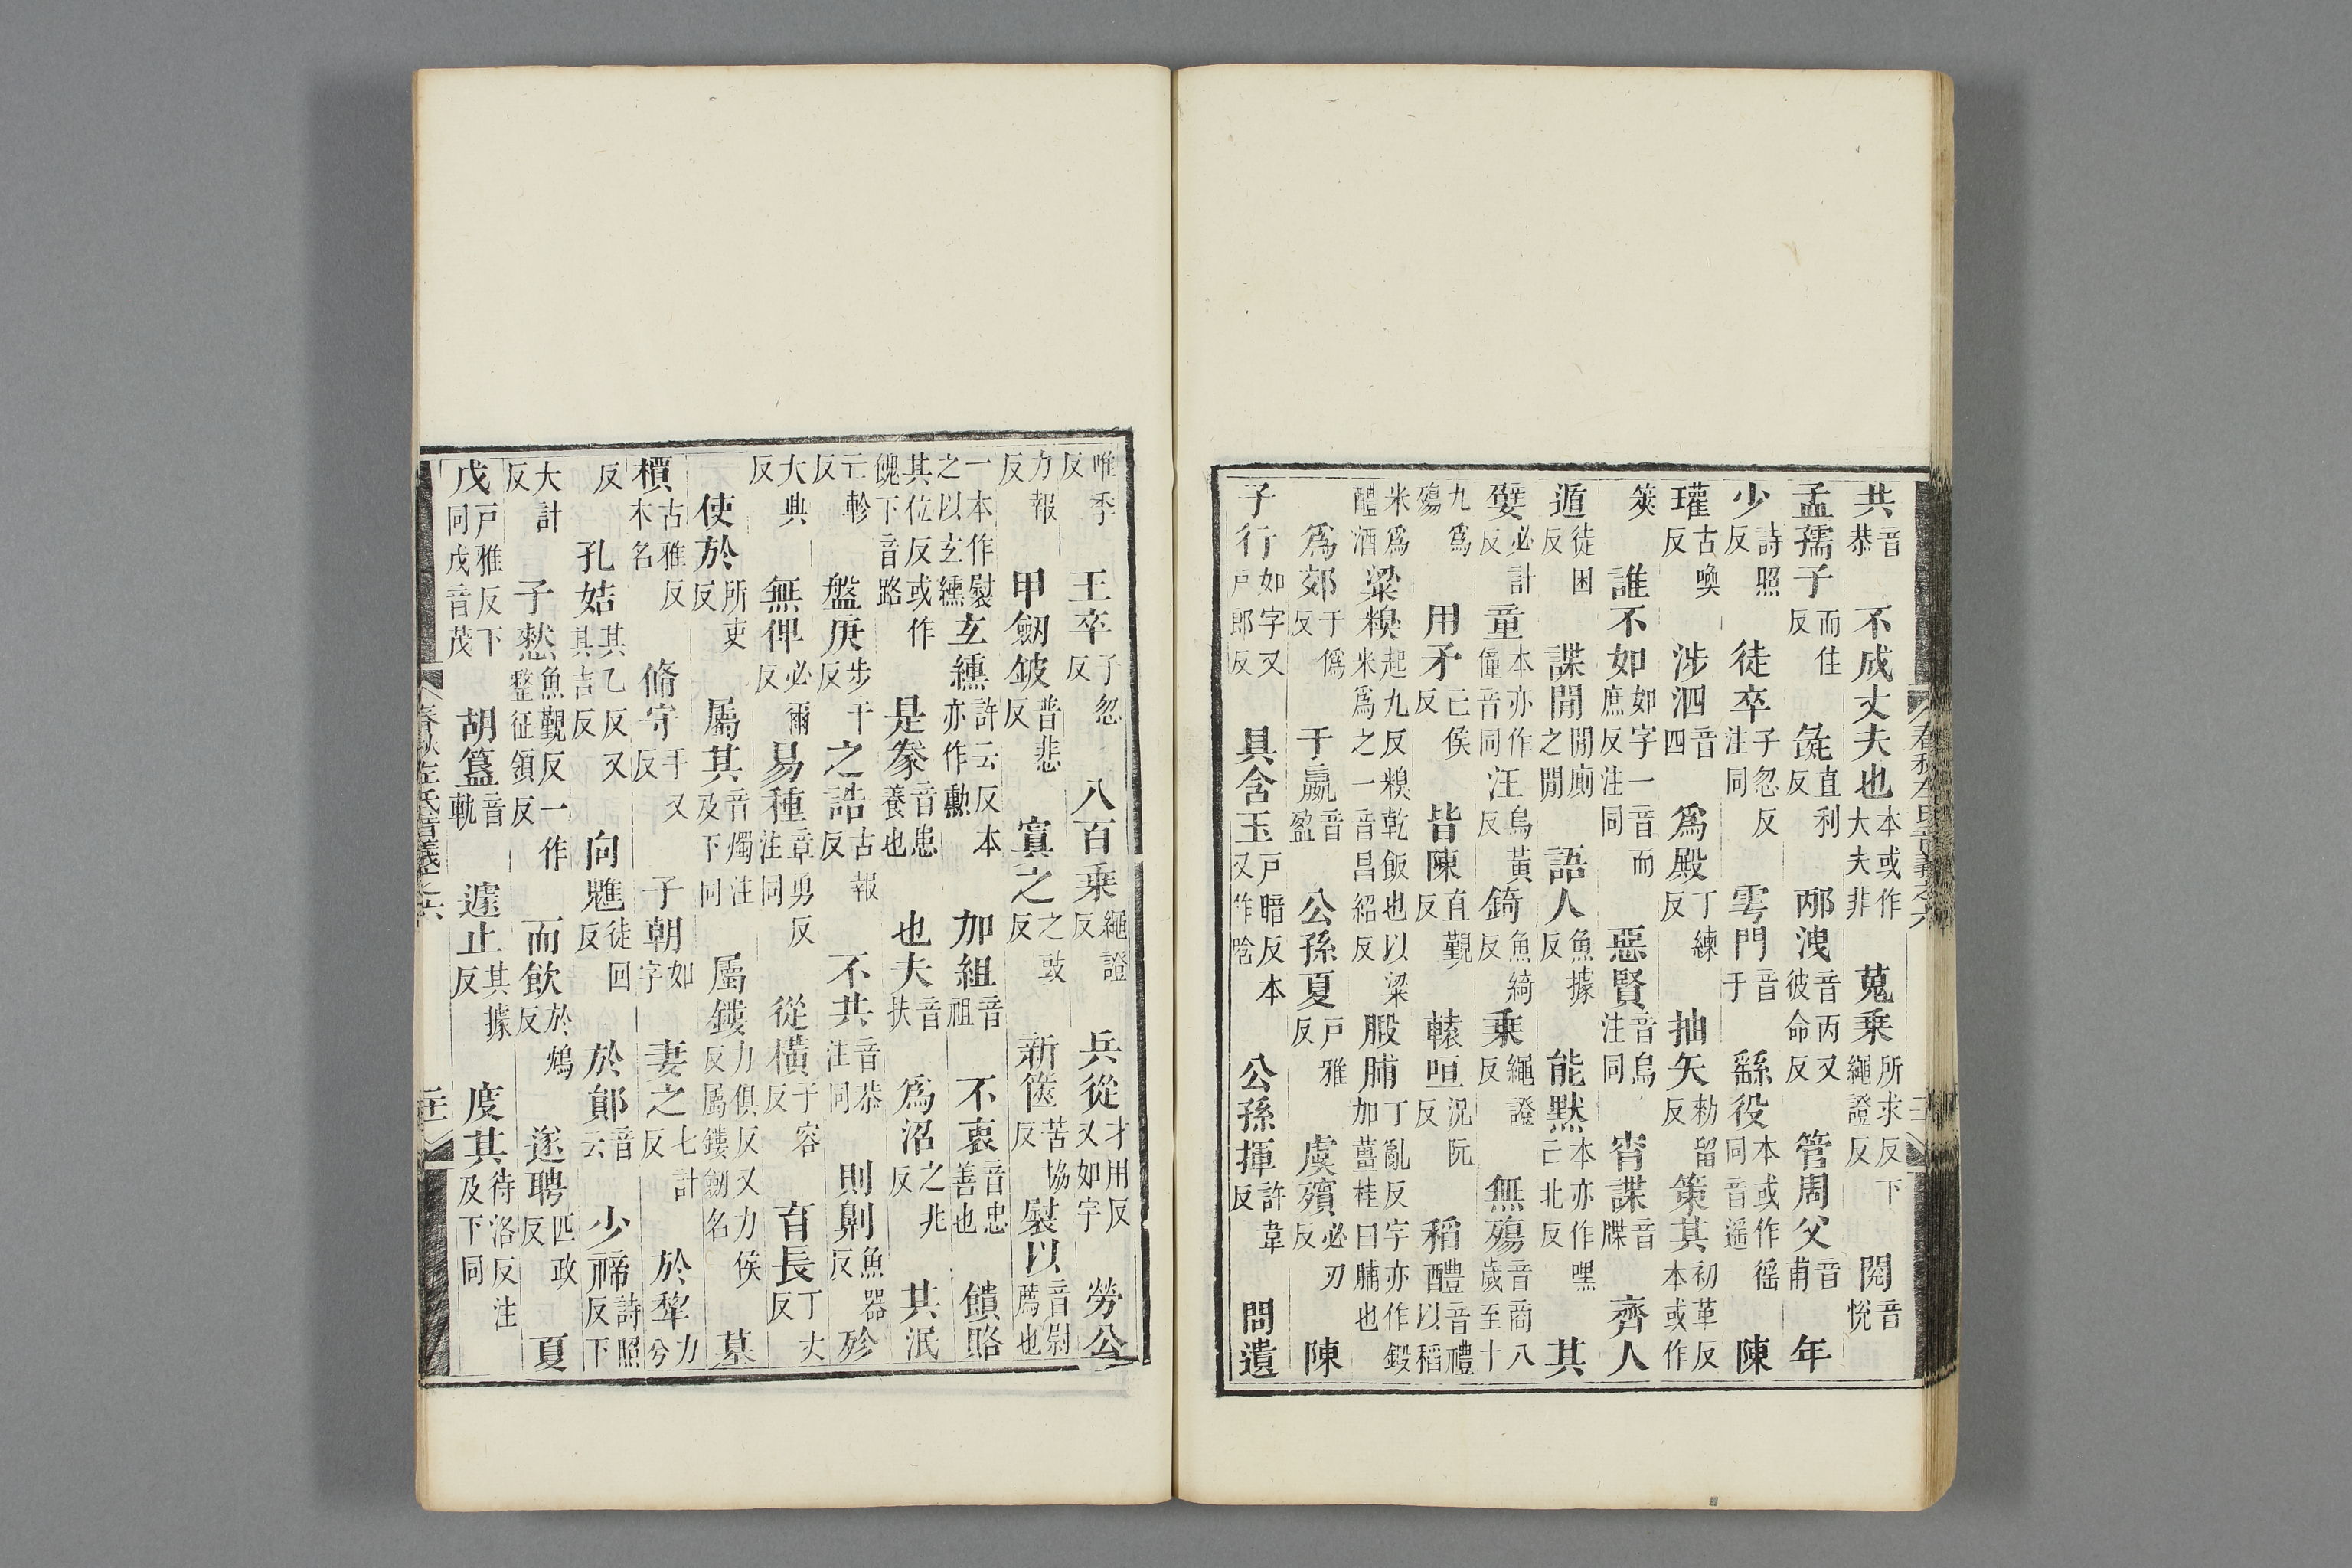 共音恭 不成丈夫也本或作大夫非 蒐乘所求反下繩證反 閱音悅
孟孺子而住反 㲋直利反 邴洩音丙又彼命反 管周父音甫 年
少詩照反 徒卒子忽反注同 雩門音于 繇役本或作徭同音遥 陳
瓘古喚反 涉泗音四 爲殿丁練反 抽矢勑留反 策其初革反本或作
筴 誰不如如字一音而庶反注同 惡賢音烏注同 宵諜音牒 齊人
遁徒困反 諜閒閒廁之閒 語人魚據反 能默本亦作嘿亡北反 其
嬖必計反 童本亦作僮音同 汪烏黃反 錡魚綺反 乘繩證反 無殤音商八歲至十
九爲殤 用矛亡侯反 皆陳直覲反 轅咺況阮反 稻醴音禮以稻
米爲醴酒 粱糗起九反糗乾飯也以粱米爲之一音昌紹反 腶脯丁亂反字亦作鍛加薑桂曰脯也
爲郊于僞反 于嬴音盈 公孫夏戸雅反 虞殯必刃反 陳
子行如字又戸郎反 具含玉戸暗反本又作唅 公孫揮許韋反 問遺
唯季反 王卒子忽反 八百乘繩證反 兵從才用反又如字 勞公
力報反 甲劒鈹普悲反 寘之之豉反 新篋苦協反 褽以音尉薦也
一本作褽之以玄纁 玄纁許云反本亦作勳 加組音祖 不衷音忠善也 饋賂
其位反或作餽下音路 是豢音患養也 也夫音扶 爲沼之兆反 其泯
亡軫反 盤庚步干反 之誥古報反 不共音恭注同 則劓魚器反 殄
大典反 無俾必爾反 易種章勇反注同 從橫子容反 育長丁丈反
使於所吏反 屬其音燭注及下同 屬鏤力俱反又力侯反屬鏤劒名 墓
檟古雅反木名 脩守手又反 子朝如字 妻之七計反 於犂力兮
反 孔姞其乙反又其吉反 向魋徒回反 於鄖音云 少禘詩照反下
大計反 子憖魚覲反一作整征領反 而飲於鴆反 遂聘匹政反 夏
戊戸雅反下同戊音茂 胡簋音軌 遽止其據反 度其待洛反注及下同
春秋左氏音義之六